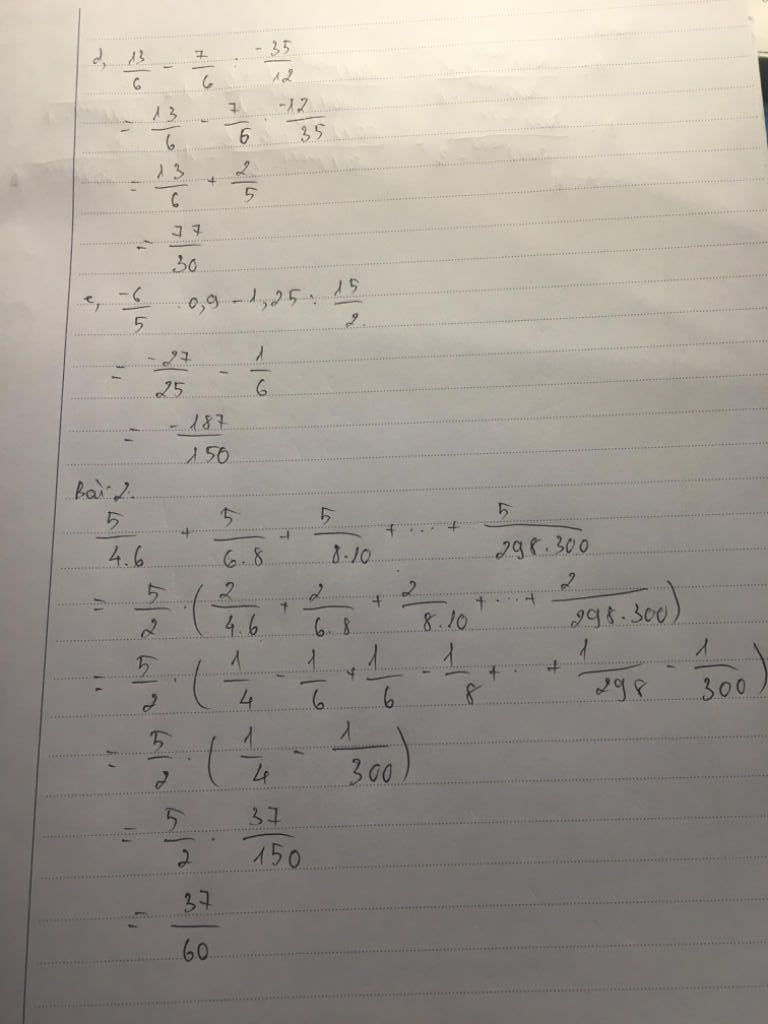 d, 13/6 - 7/6 : -35/12
= 13/6 - 7/6 . -12/35
= 13/6 + 2/5
= 77/30
e, -6/5 . 0,9 - 1,25 : 15/2
= -27/25 - 1/6
= -187/150
Bài 2.
5/4.6 + 5/6.8 + 5/8.10 + ... + 5/298.300
= 5/2 . (2/4.6 + 2/6.8 + 2/8.10 + ... + 2/298.300)
= 5/2 . (1/4 - 1/6 + 1/6 - 1/8 + .. + 1/298 - 1/300)
= 5/2 . (1/4 - 1/300)
= 5/2 . 37/150
= 37/60